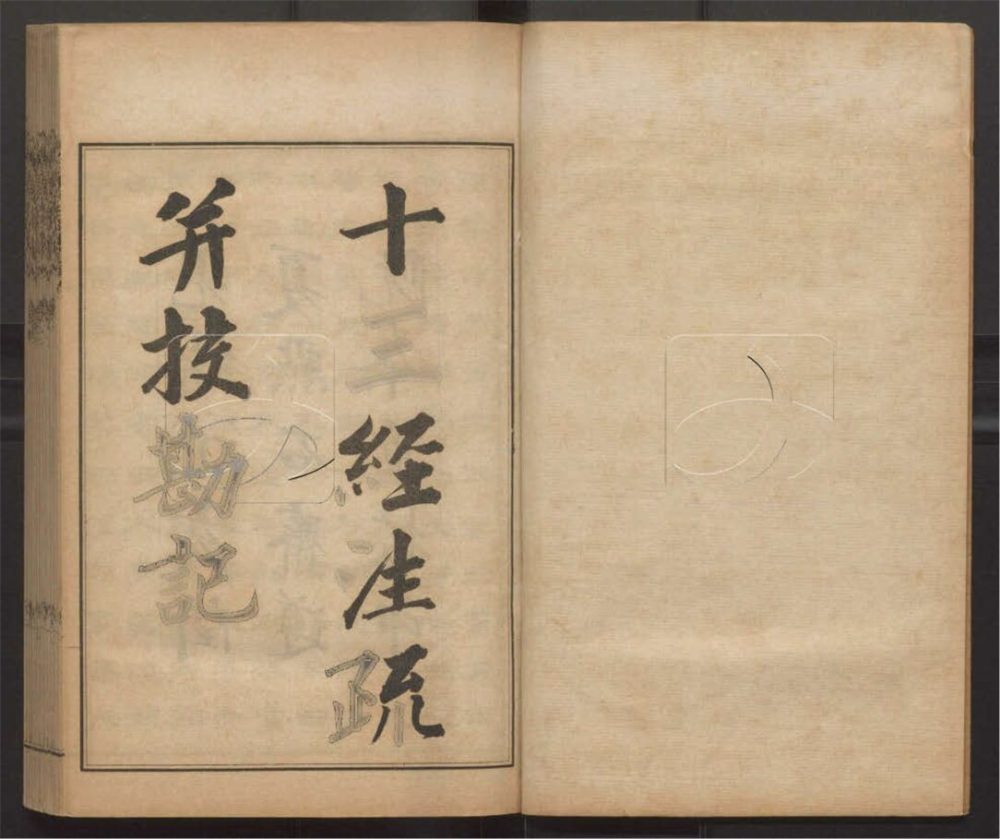 十三經注疏
并挍勘記